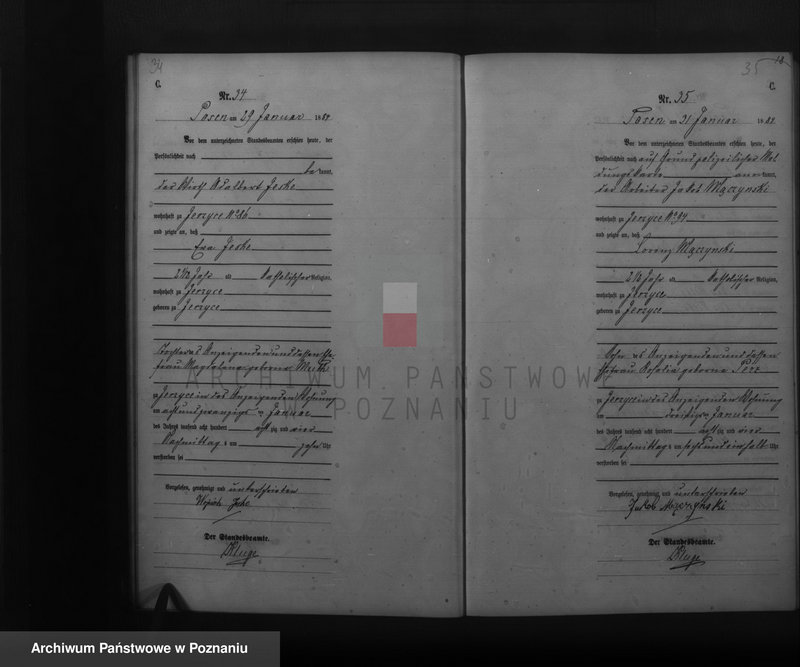 34
C.
Nr. 34
Posen am 29 Januar 1884
Vor dem unterzeichneten Standesbeamten erschien heute, der
Persönlichkeit nach
be kannt,
der Wirth Adalbert Jeske
wohnhaft zu Jerzyce No 86
und zeigte an, daß
Eva Jeske
2 1/2 Jahr alt katholischer Religion,
wohnhaft zu Jerzyce
geboren zu Jerzyce
Tochter des Anzeigenden und dessen Ehe
frau Magdalena geborne
zu Jerzyce in des Anzeigenden Wohnung
am acht und zwanzigsten Januar
des Jahres tausend acht hundert acht zig und vier
Nachmittag s um zehn Uhr
verstorben sei
Vorgelesen, genehmigt und unterschrieben
Wojciech Jeske
Der Standesbeamte.
Kluge
35
C.
Nr. 35
Posen am 31 Januar 1884
Vor dem unterzeichneten Standesbeamten erschien heute, der
Persönlichkeit nach auf Grund polizeilicher Mel
dungskarte aner kannt,
der Arbeiter Jakob Mączynski
wohnhaft zu Jerzyce No 94
und zeigte an, daß
Lorenz Mączynski
2 1/2 Jahr alt katholischer Religion,
wohnhaft zu Jerzyce
geboren zu Jerzyce
Sohn des Anzeigenden und dessen
Ehefrau Rosalia geborne
zu Jerzyce in des Anzeigenden Wohnung
am dreißigsten Januar
des Jahres tausend acht hundert acht zig und vier
Nachmittag s um sechs und einhalb Uhr
verstorben sei
Vorgelesen, genehmigt und unterschrieben
Jakob
Der Standesbeamte.
Kluge
ARCHIWUM PAŃSTWOWE
POZNANIU
Archiwum Państwowe w Poznaniu